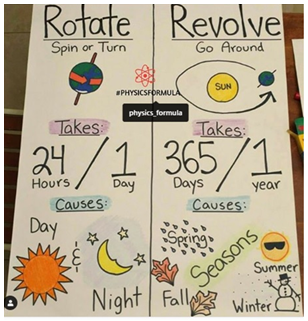 Rotate
Spin or Turn
#PHYSICSFORMULA
physics_formula
Takes:
24 / 1
Hours Day
Causes:
Day
&
Night
Revolve
Go Around
SUN
Takes:
365 / 1
Days year
Causes:
Spring
Seasons
Summer
Fall
Winter